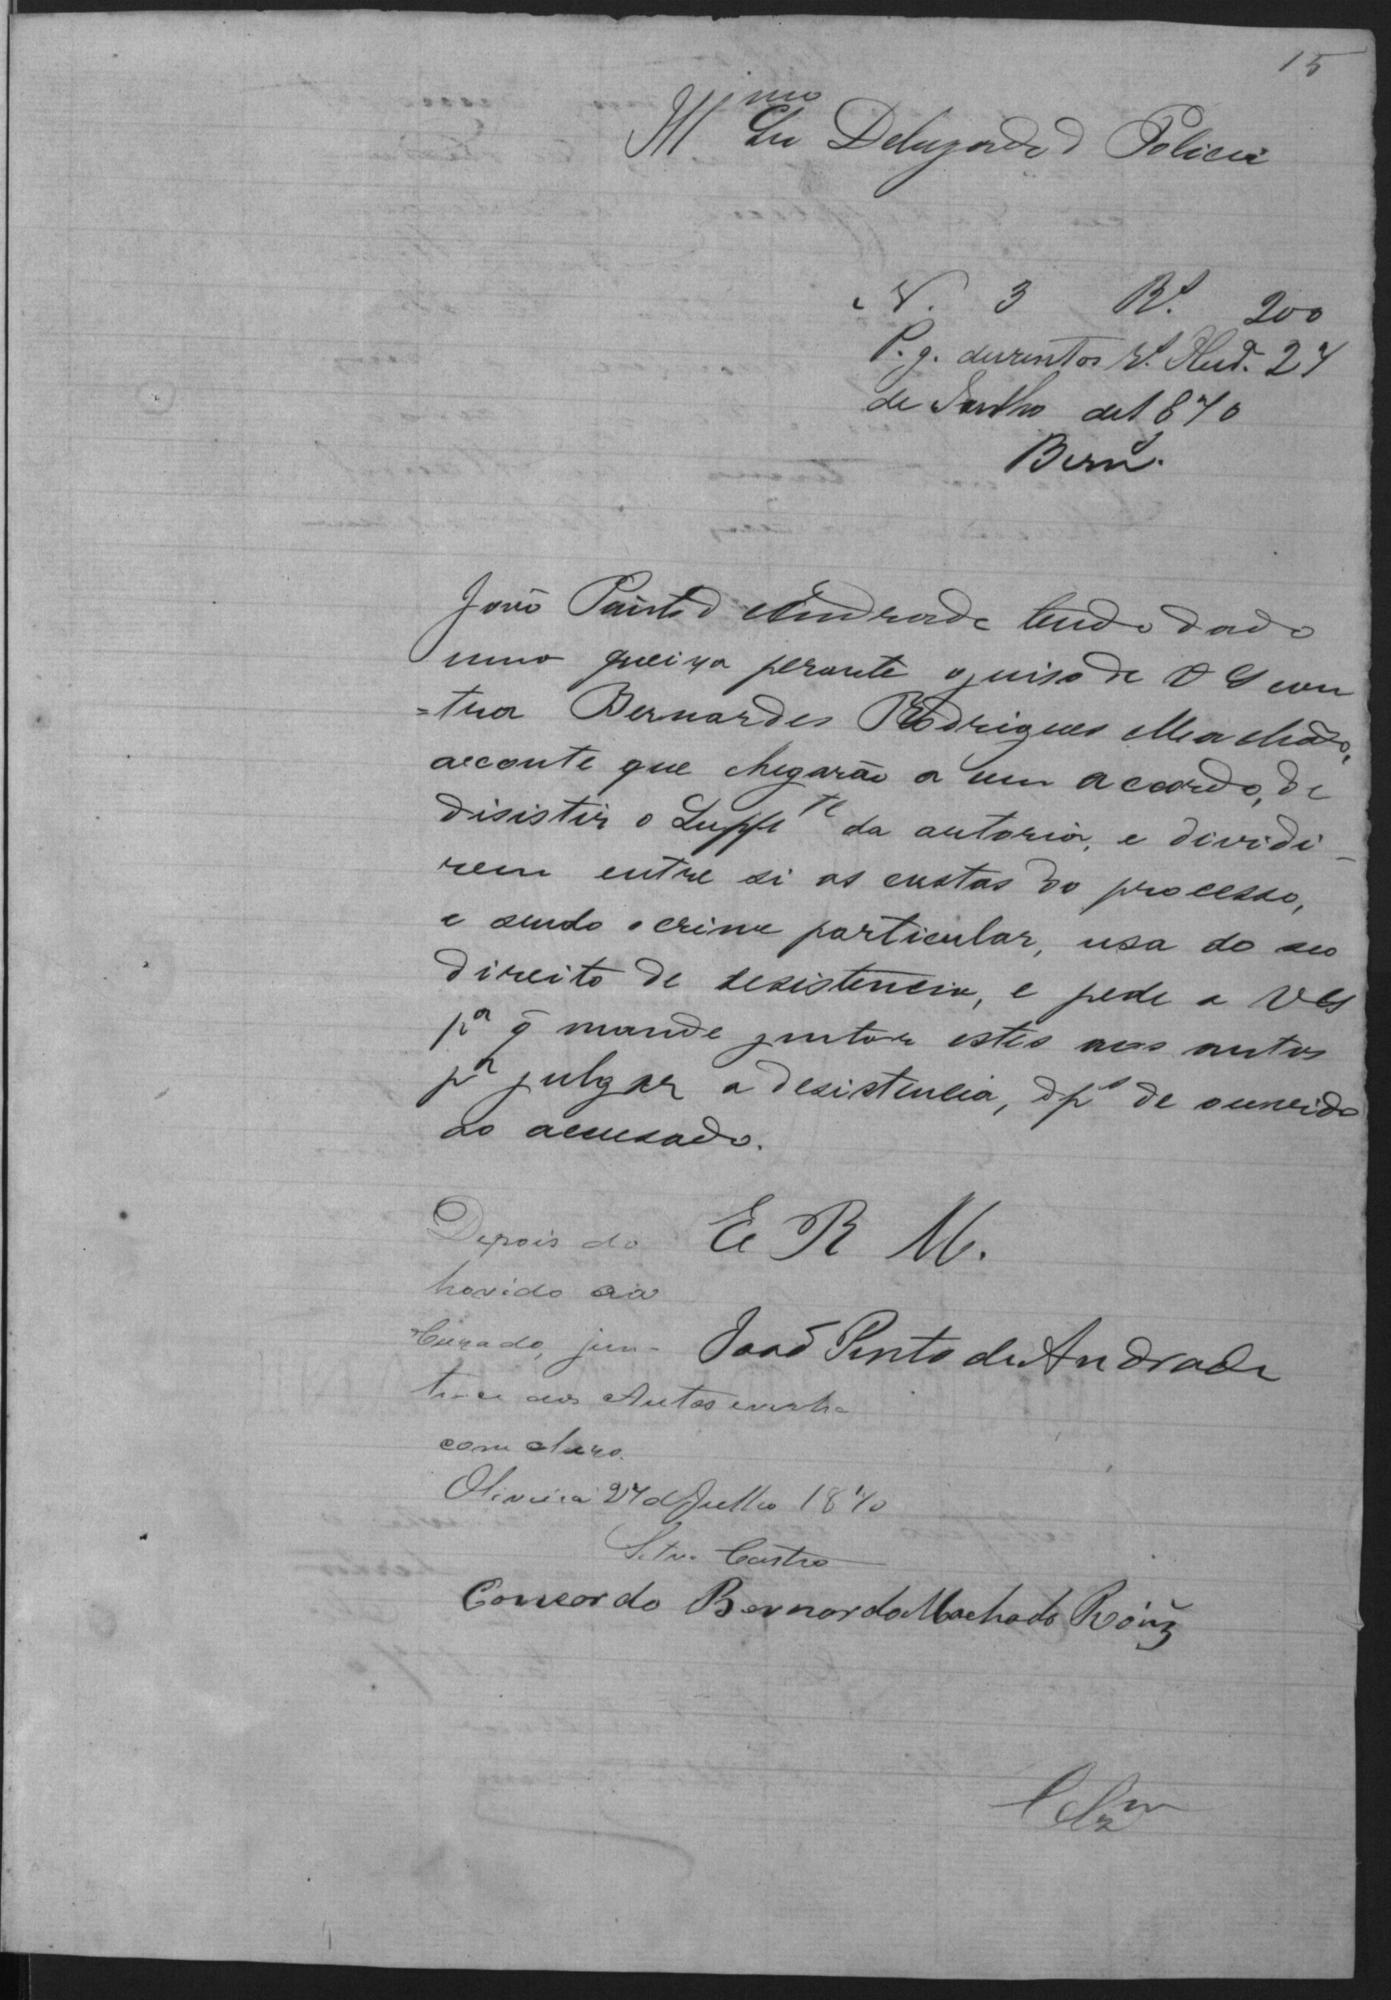 15
Ill.mo Snr Delegado d Policia
N. 3 Rs. 200
P. g. duzentos rs. 27
de Junho de 1870
Bern.
João Pinto d Andrade tendo dado
uma queixa perante o juiso de V S con
=tra Bernardes Rodrigues Machado,
aconte que chegarão a um acordo, de
disistir o Suppte da autoria, e dividi-
rem entre si as custas do processo,
e sendo o crime particular, usa do seo
direito de desistencia, e pede a V S
pa q̃ mande juntar estes aos autos
pa julgar a desistencia, dps de ouvido
ao acusado.
E R M.
Depois do
hovido oa
Curado, jun-
te-se aos Autos
concluzo.
João Pinto de Andrade
Oliveira 27 d Julho 1870
Castro
Concordo Bernardo Machado Roiz